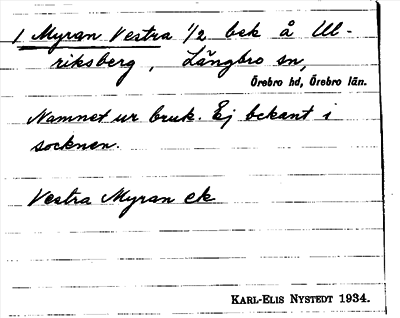 1 Myran Vestra 1/2 bek å Ul-
riksberg, Längbro sn,
Örebro hd, Örebro län.
Namnet ur bruk. Ej bekant i
socknen.
Vestra Myran ek
KARL-ELIS NYSTEDT 1934.